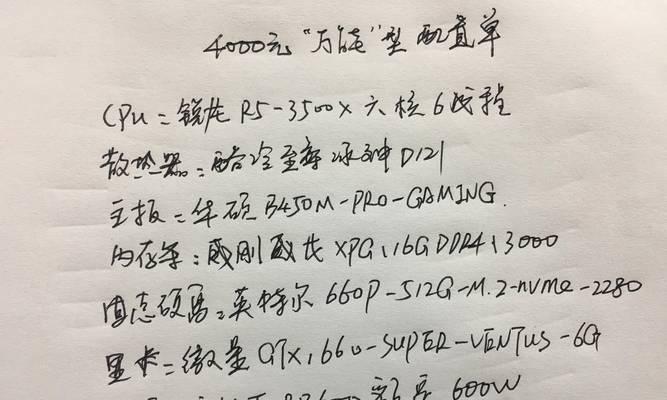 4000元“万能”型配置单
CPU=锐龙R5-3500X六核6线程
散热器:酷冷至尊冰神D121
主板=华硕B450M-PRO-GAMING.
内存条:威刚威龙XPG、16GDDR4、3000
固态硬盘:英特尔660P-512G-M.2-nvme-2280
显卡=微星GTX,1660-SUPER-VENTUS-6G
额 600W